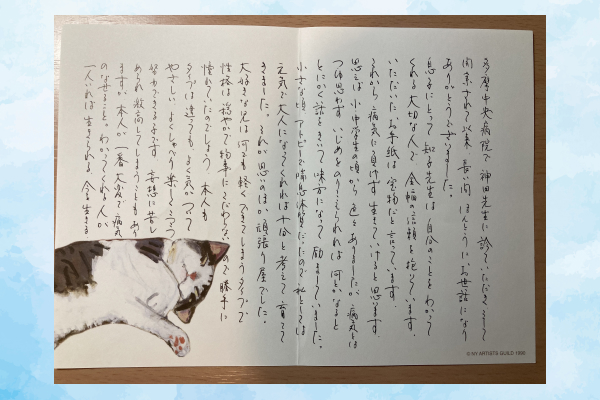 多摩中央病院で神田先生に診ていただき、そして
開業されて以来、長い間ほんとうにお世話になり
ありがとうございました。
息子にとって 和子先生は自分のことをわかって
くれる大切な人で 全幅の信頼を抱いています。
いただいたお手紙は宝物だと言っています。
これから、病気に負けず生きていけると思います。
思えば 小中学生の頃から 色々ありましたが 病気とは
つゆ思わず いじめをのりこえられれば 何とかなると
とにかく話をきいて 味方になって 励ましていました。
小さな頃 アトピーで喘息体質だったので 私としては
元気で大人になってくれれば十分と考えて 育てて
きました。それが思いのほか 頑張り屋でした。
大好きな兄は何でも軽くできてしまうタイプで
性格は穏やかで物事にこだわらないので 勝手に
憧れていたのでしょう 本人も
タイプは違ってもよく気がついて
やさしい、よくしゃべり楽しくて
努力できる子です 妄想に苦し
められ 救急してしまうこともあり
ますが、本人が一番大変で 病気
のなせること。わかってくれる人が
一人いれば 生きられる、今を生きる
©NY ARTISTS GUILD 1990